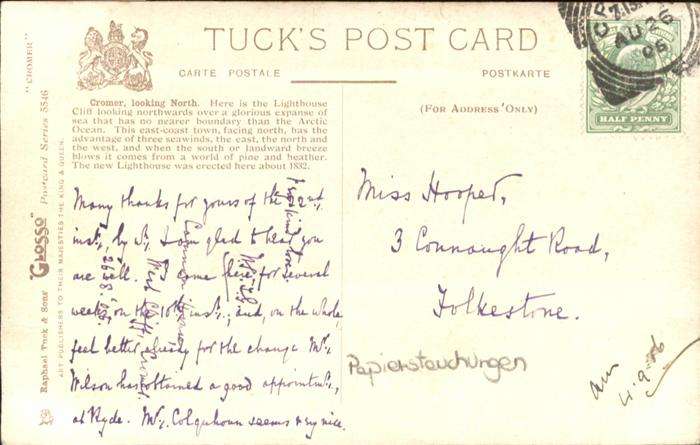 TUCK'S POST CARD
CARTE POSTALE
POSTKARTE
(FOR ADDRESS ONLY)
Cromer, looking North. Here is the Lighthouse
Cliff looking northwards over a glorious expanse of
sea that has no nearer boundary than the Arctic
Ocean. This east-coast town, facing north, has the
advantage of three seawinds, the east, the north and
the west, and when the south or landward breeze
blows it comes from a world of pine and heather.
The new Lighthouse was erected here about 1832.
Many thanks for yours of the 22nd
inst., by I am glad to hear you
are well. I came here for several
weeks, on the 16th inst.; and, on the whole,
feel better already for the change. Mr.
Wilson has obtained a good appointmt.,
at Ryde. Mr. Colquhoun seems very nice.
kind
West Cliff,
Cromer
26.8.06
Miss Hooper,
3 Connaught Road,
Folkestone.
Papierstauchungen
ans
4.9.06
HALF PENNY
AU 26
06
"CROMER"
Raphael Tuck & Sons' "GLOSSO" Postcard Series 5546
ART PUBLISHERS TO THEIR MAJESTIES THE KING & QUEEN.